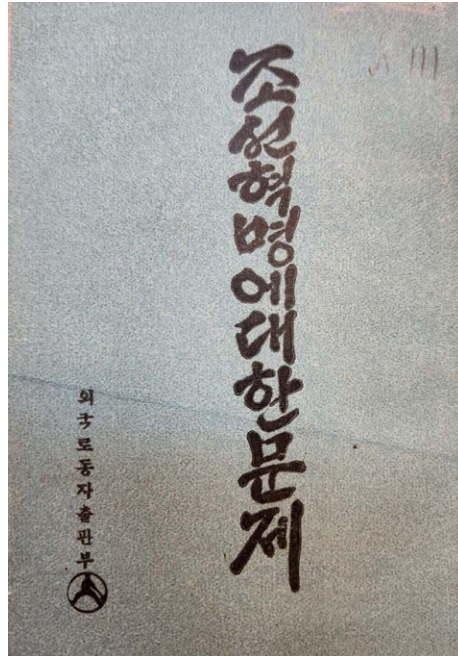 조선혁명에대한문제
외국로동자출판부